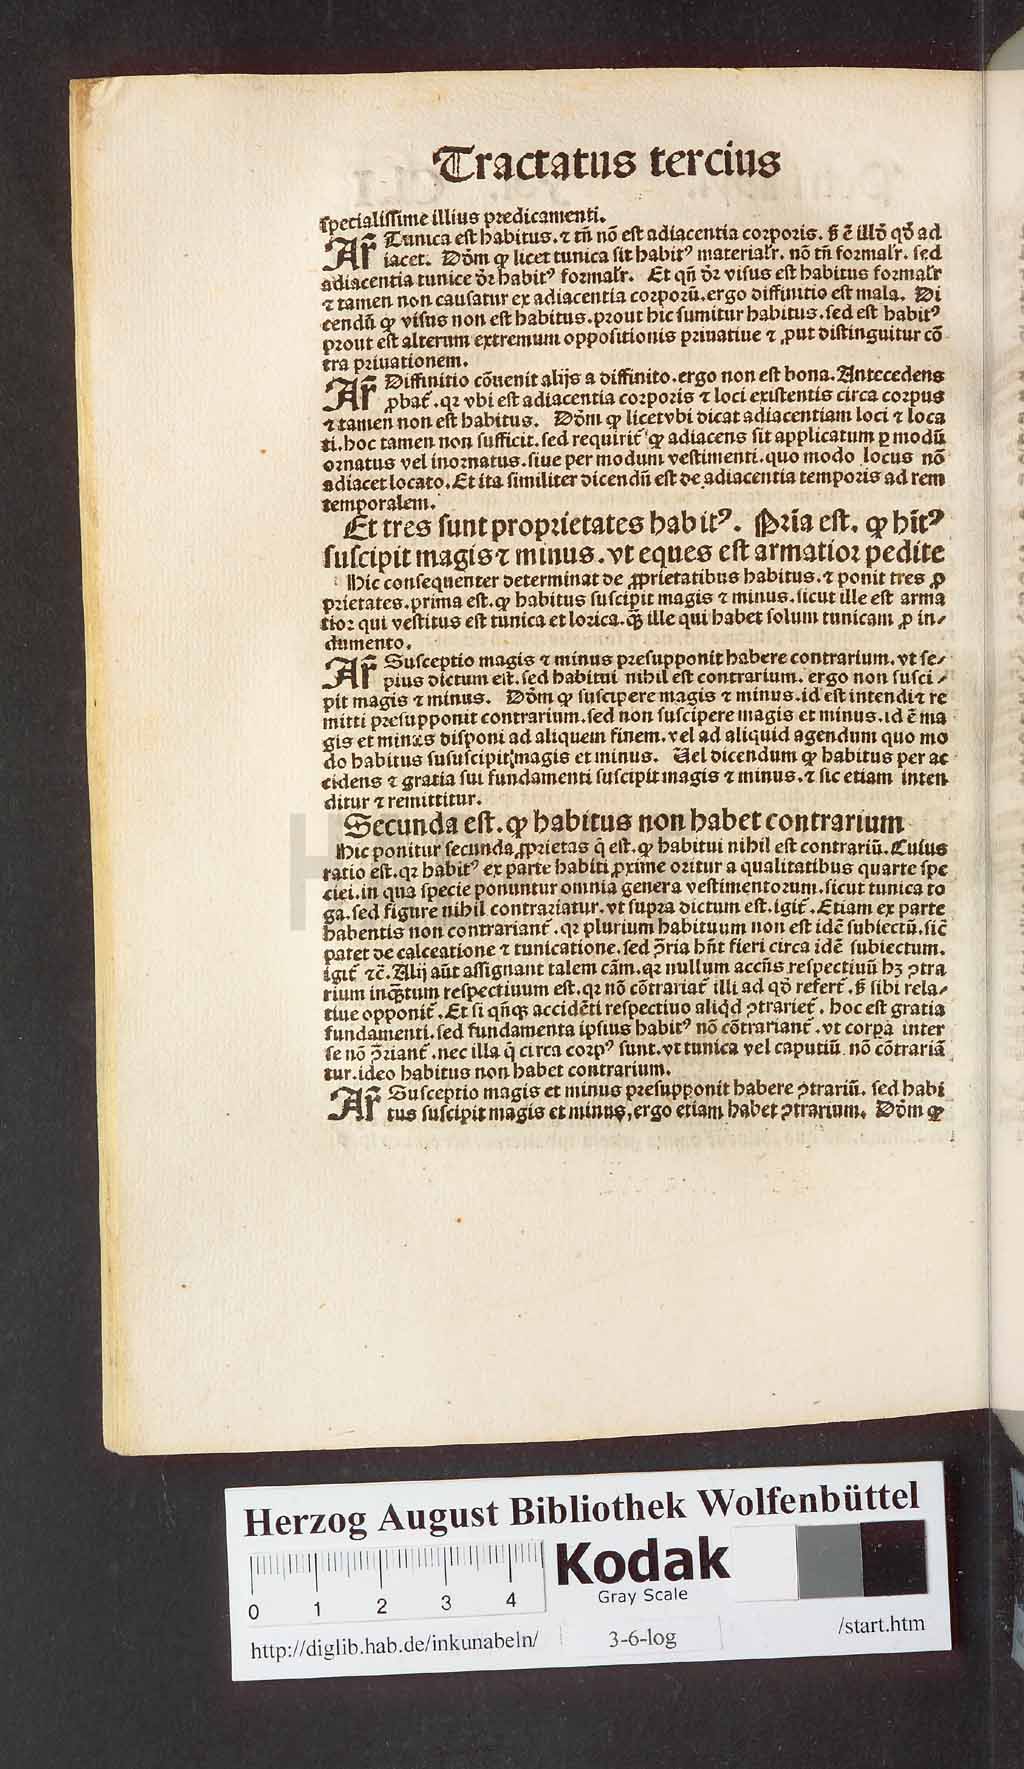 Tractatus tercius
specialissime illius predicamenti.
Ar̃ Tunica est habitus. ⁊ tñ nõ est adiacentia corporis. ſʒ ẽ illď qď ad
iacet. Dõm ꝙ licet tunica sit habitꝰ materialr̃. nõ tñ formalr̃. sed
adiacentia tunice dr̃ habitꝰ formalr̃. Et qñ dr̃ visus est habitus formalr̃
⁊ tamen non causatur ex adiacentia corporũ. ergo diffinitio est mala. Di
cendũ ꝙ visus non est habitus. prout hic sumitur habitus. sed est habitꝰ
prout est alterum extremum oppositionis priuatiue ⁊ ꝓut distinguitur cõ
tra priuationem.
Ar̃ Diffinitio cõuenit alijs a diffinito. ergo non est bona. Antecedens
ꝓbat̃. qꝛ vbi est adiacentia corporis ⁊ loci existentis circa corpus
⁊ tamen non est habitus. Dõm ꝙ licet vbi dicat adiacentiam loci ⁊ loca
ti. hoc tamen non sufficit. sed requirit̃ ꝙ adiacens sit applicatum ꝑ modũ
ornatus vel inornatus. siue per modum vestimenti. quo modo locus nõ
adiacet locato. Et ita similiter dicendũ est de adiacentia temporis ad rem
temporalem.
Et tres sunt proprietates habitꝰ. Pr̃ia est. ꝙ hĩtꝰ
suscipit magis ⁊ minus. vt eques est armatior pedite
Hic consequenter determinat de ꝓprietatibus habitus. ⁊ ponit tres ꝓ
prietates. prima est. ꝙ habitus suscipit magis ⁊ minus. sicut ille est arma
tior qui vestitus est tunica et lorica. q̃ʒ ille qui habet solum tunicam ꝓ in⸗
dumento.
Ar̃ Susceptio magis ⁊ minus presupponit habere contrarium. vt se⸗
pius dictum est. sed habitui nihil est contrarium. ergo non susci⸗
pit magis ⁊ minus. Dõm ꝙ suscipere magis ⁊ minus. id est intendi ⁊ re
mitti presupponit contrarium. sed non suscipere magis et minus. id ẽ ma
gis et minus disponi ad aliquem finem. vel ad aliquid agendum quo mo
do habitus sususcipit magis et minus. Uel dicendum ꝙ habitus per ac
cidens ⁊ gratia sui fundamenti suscipit magis ⁊ minus. ⁊ sic etiam inten
ditur ⁊ remittitur.
Secunda est. ꝙ habitus non habet contrarium
Hic ponitur secunda ꝓprietas q̃ est. ꝙ habitui nihil est contrariũ. Cuius
ratio est. qꝛ habitꝰ ex parte habiti ꝓxime oritur a qualitatibus quarte spe
ciei. in qua specie ponuntur omnia genera vestimentorum. sicut tunica to
ga. sed figure nihil contrariatur. vt supra dictum est. igit̃. Etiam ex parte
habentis non contrariant̃. qꝛ plurium habituum non est idẽ subiectũ. sic̃
patet de calceatione ⁊ tunicatione. sed ꝯ̃ria hñt fieri circa idẽ subiectum.
igit̃ ⁊c̃. Alij aũt assignant talem cãm. qꝛ nullum accñs respectiuũ hʒ ꝯtra
rium inq̃ʒtum respectiuum est. qꝛ nõ cõtrariat̃ illi ad qď refert̃. ſʒ sibi rela⸗
tiue opponit̃. Et si qñqʒ accidẽti respectiuo aliqď ꝯtrariet̃. hoc est gratia
fundamenti. sed fundamenta ipsius habitꝰ nõ cõtrariant̃. vt corpa inter
se nõ ꝯ̃riant̃. nec illa q̃ circa corpꝰ sunt. vt tunica vel caputiũ nõ cõtrariã
tur. ideo habitus non habet contrarium.
Ar̃ Susceptio magis et minus presupponit habere ꝯtrariũ. sed habi
tus suscipit magis et minus, ergo etiam habet ꝯtrarium. Dõm ꝙ
Herzog August Bibliothek Wolfenbüttel
0 1 2 3 4
Kodak
Gray Scale
http://diglib.hab.de/inkunabeln/ 3-6-log /start.htm